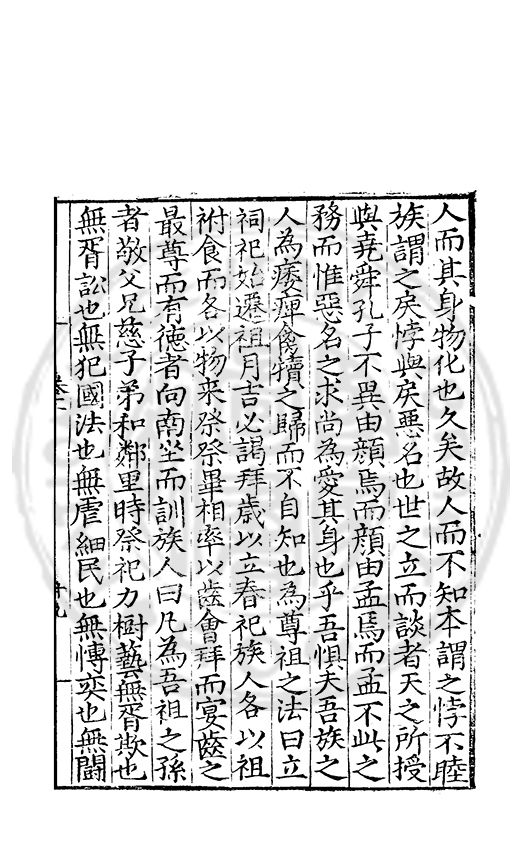 人而其身物化也久矣故人而不知本謂之悖不睦
族謂之戾悖與戾惡名也世之立而談者天之所授
與堯舜孔子不異由顏焉而顏由孟焉而孟不此之
務而惟惡名之求尚為愛其身也乎吾懼夫吾族之
人為痿痺禽犢之歸而不自知也為尊祖之法曰立
祠祀始遷祖月吉必謁拜歲以立春祀族人各以祖
祔食而各以物来祭祭畢相率以齒會拜而宴齒之
最尊而有德者向南坐而訓族人曰凡為吾祖之孫
者敬父兄慈子弟和鄰里時祭祀力樹藝無胥欺也
無胥訟也無犯國法也無虐細民也無慱奕也無鬭